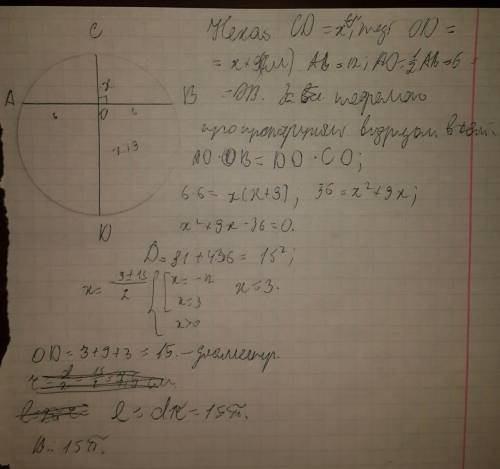 C
A
B
O
x
6
6
x+9
D
Нехай CD = x, тоді OD =
= x+9(см) AB = 12; AO = 1/2 AB = 6 =
= OB. За теоремою
про пропорційні відрізки в колі
AO·OB = DO·CO;
6·6 = x(x+9), 36 = x²+9x;
x²+9x-36=0.
D = 81+4·36 = 15²;
x = 9±15 / 2
x = -12
x = 3
x>0
x = 3.
OD = 3+9+3 = 15. - діаметр.
l = dπ = 15π.
В.: 15π.